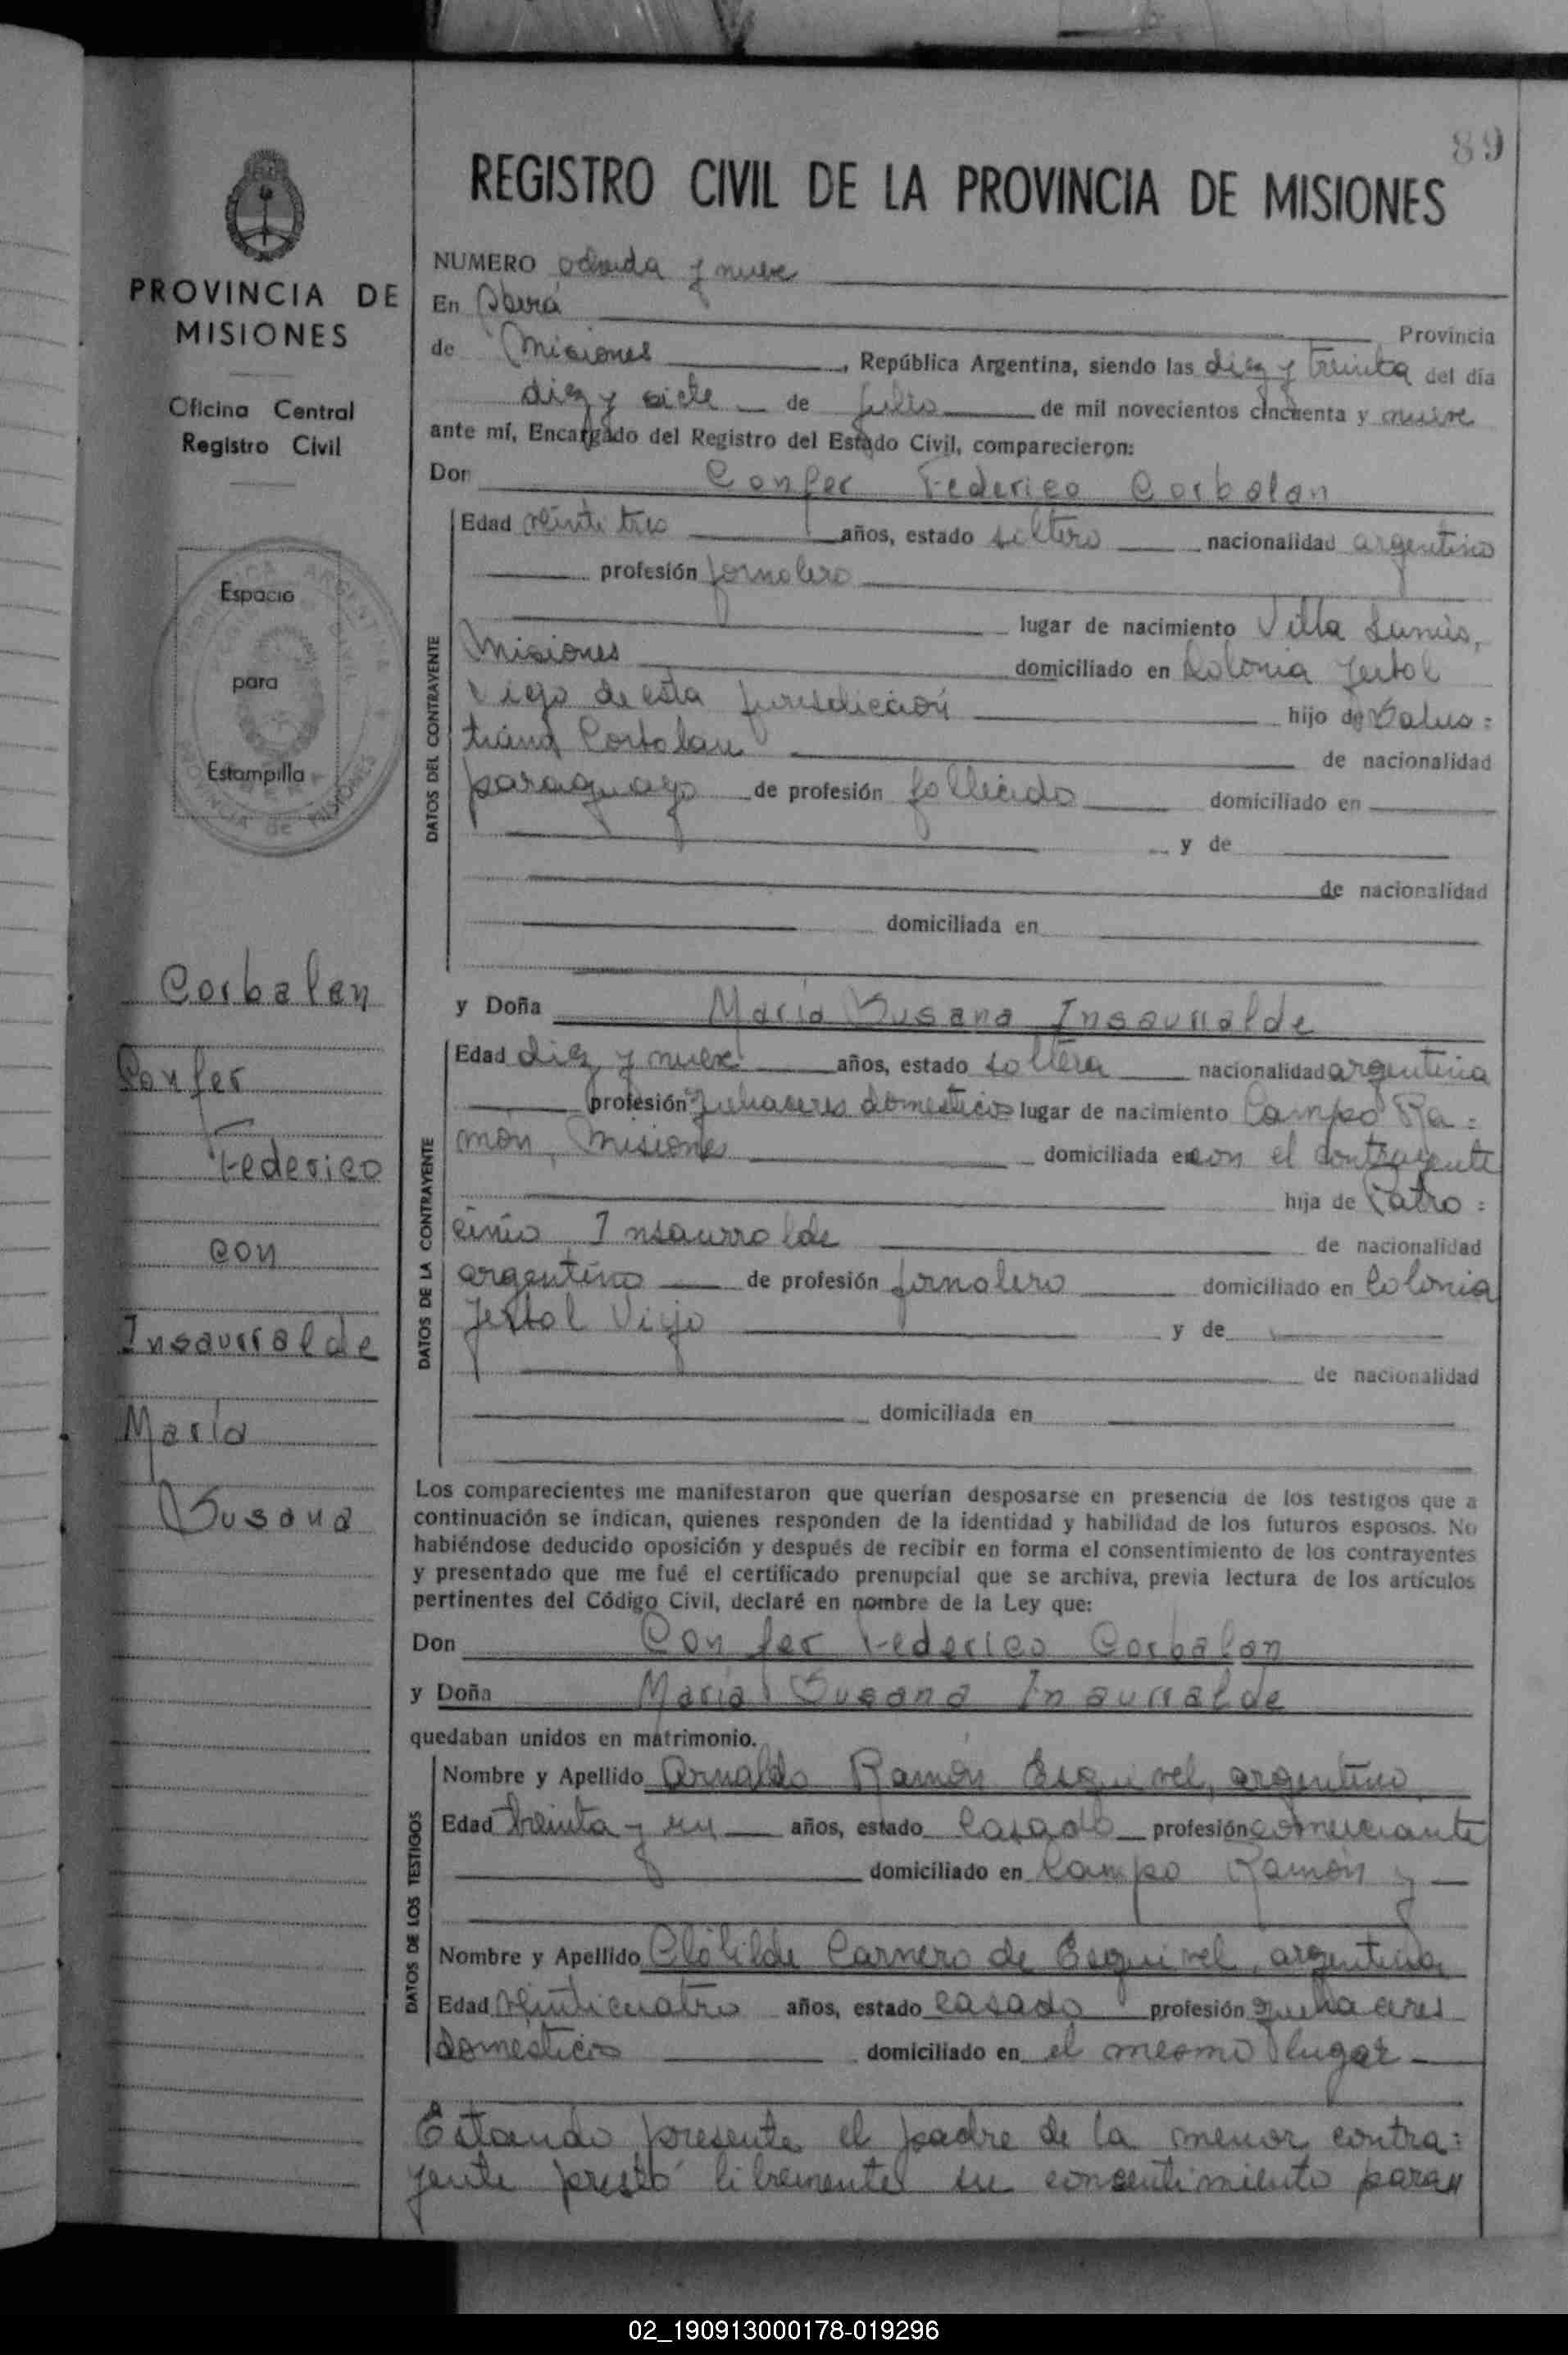 89
REGISTRO CIVIL DE LA PROVINCIA DE MISIONES
PROVINCIA DE
MISIONES
Oficina Central
Registro Civil
Espacio
para
Estampilla
Corbalan
Confer
Federico
con
Insaurralde
María
Susana
NUMERO ochenta y nueve
En Oberá
Provincia
de Misiones, República Argentina, siendo las diez y treinta del día
diez y siete de julio de mil novecientos cincuenta y nueve
ante mí, Encargado del Registro del Estado Civil, comparecieron:
Don Confer Federico Corbalan
DATOS DEL CONTRAYENTE
Edad veinte tres años, estado soltero nacionalidad argentino
profesión jornalero
lugar de nacimiento Villa
Misiones domiciliado en Colonia Yerbal
Viejo de esta jurisdicción hijo de Salus=
tiano Corbalan de nacionalidad
paraguayo de profesión fallecido domiciliado en
y de
de nacionalidad
domiciliada en
y Doña María Susana Insaurralde
DATOS DE LA CONTRAYENTE
Edad diez y nueve años, estado soltera nacionalidad argentina
profesión quehaceres domesticos lugar de nacimiento Campo Ra=
món, Misiones domiciliada en con el contrayente
hija de Patro=
cinio Insaurralde de nacionalidad
argentino de profesión jornalero domiciliado en Colonia
Yerbal Viejo y de
de nacionalidad
domiciliada en
Los comparecientes me manifestaron que querían desposarse en presencia de los testigos que a
continuación se indican, quienes responden de la identidad y habilidad de los futuros esposos. No
habiéndose deducido oposición y después de recibir en forma el consentimiento de los contrayentes
y presentado que me fué el certificado prenupcial que se archiva, previa lectura de los artículos
pertinentes del Código Civil, declaré en nombre de la Ley que:
Don Confer Federico Corbalan
y Doña María Susana Insaurralde
quedaban unidos en matrimonio.
DATOS DE LOS TESTIGOS
Nombre y Apellido Arnaldo Ramón Esquivel, argentino
Edad treinta y un años, estado casado profesión comerciante
domiciliado en Campo Ramón y
Nombre y Apellido Clotilde Carnero de Esquivel, argentina
Edad veinticuatro años, estado casada profesión quehaceres
domesticos domiciliado en el mesmo lugar
Estando presente el padre de la menor contra=
yente prestó libremente su consentimiento para
02_190913000178-019296